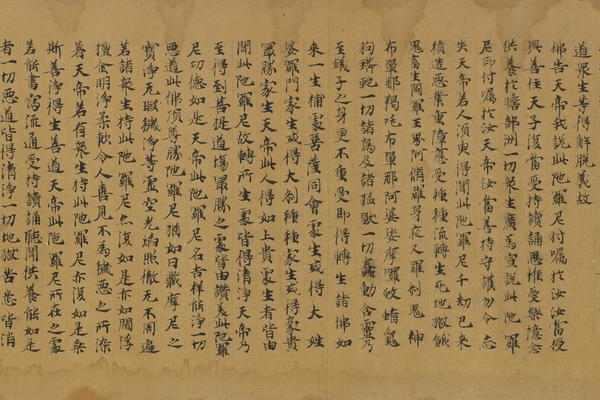 道眾生等得解脫義故
佛告天帝我說此陁羅尼付囑於汝汝當授
與善住天子復當受持讀誦思惟愛樂憶念
供養於贍部洲一切眾生廣為宣說此陁羅
尼印付囑於汝天帝汝當善持守護勿令忘
失天帝若人須臾得聞此陁羅尼千劫已來
積造惡業重障應受種種流轉生死地獄餓
鬼畜生閻羅王界阿修羅身夜叉羅剎鬼神
布單那羯吒布單那阿婆娑摩羅蚊蝱龜
狗蟒虵一切諸鳥及諸猛獸一切蠢動含靈乃
至蟻子之身更不重受即得轉生諸佛如
來一生補處菩薩同會處生或得大姓
婆羅門家生或得大剎種種家生或得豪貴
最勝家生天帝此人得如上貴處生者皆由
聞此陁羅尼故轉所生處皆得清淨天帝乃
至得到菩提道場最勝之處皆由讚美此陁羅
尼功德如是天帝此陁羅尼名吉祥能淨一切
惡道此佛頂尊勝陁羅尼猶如日藏摩尼之
寶淨无瑕穢淨等虛空光焰照徹无不周遍
若諸眾生持此陁羅尼亦復如是亦如閻浮
檀金明淨柔軟令人喜見不為穢惡之所染
著天帝若有眾生持此陁羅尼亦復如是乘
斯善淨得生善道天帝此陁羅尼所在之處
若能書寫流通受持讀誦聽聞供養能如是
者一切惡道皆得清淨一切地獄苦惱皆消